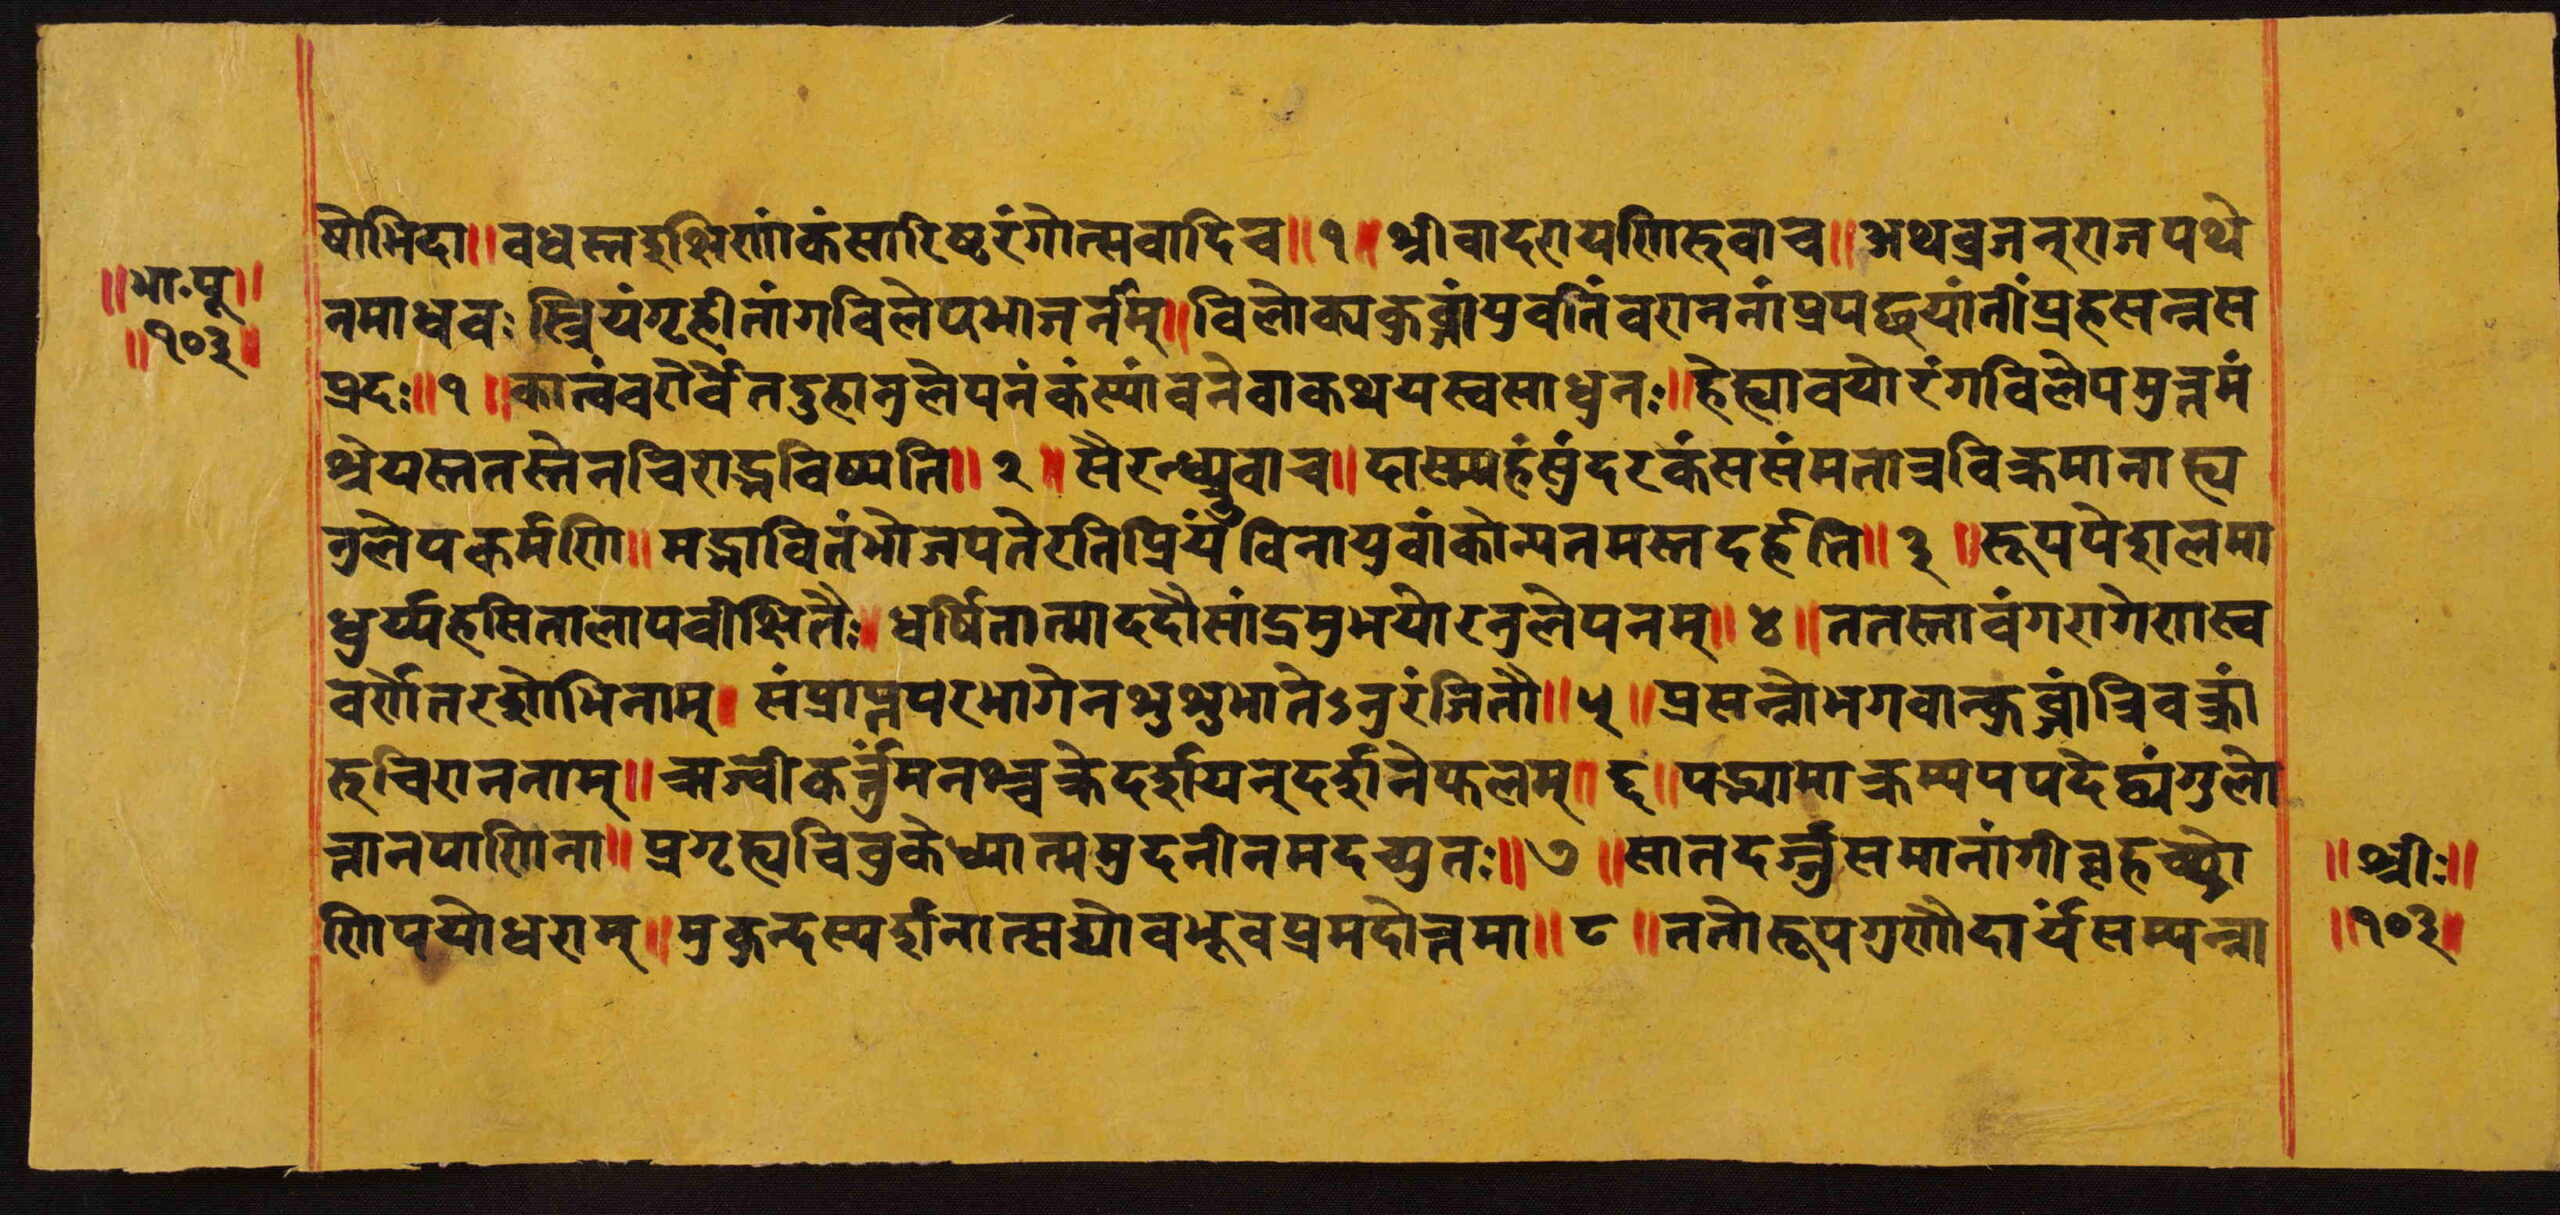 ॥भा.पू॥
॥१०३॥
षोभिदा॥वधस्तद्रक्षिणांकंसारिष्टरंगोत्सवादिच॥१॥श्रीवादरायणिरुवाच॥अथव्रजन्राजपथे
नमाधवःस्त्रियंगृहीतांगविलेपभाजनम्॥विलोक्यकुब्जांयुवतिंवराननांप्रपच्छयांतींप्रहसन्नस
प्रदः॥१॥कात्वंवरोर्वेतदुहानुलेपनंकस्यांवनेवाकथयस्वसाधुनः॥देह्यावयोरंगविलेपमुत्तमं
श्रेयस्ततस्तेनचिराद्भविष्यति॥२॥सैरन्ध्र्युवाच॥दास्म्यहंसुंदरकंससंमतात्रविक्रमानाह्य
नुलेपकर्मणि॥मद्भावितंभोजपतेरतिप्रियंविनायुवांकोन्यतमस्तदर्हति॥३॥रूपपेशलमा
धुर्य्यहसितालापवीक्षितैः॥धर्षितात्माददौसांद्रमुभयोरनुलेपनम्॥४॥ततस्तावंगरागेणस्व
वर्णेतरशोभिनाम्॥संप्राप्तपरभागेनशुशुभातेऽनुरंजितौ॥५॥प्रसन्नोभगवान्कुब्जांत्रिवक्रां
रुचिराननाम्॥ऋज्वीकर्त्तुंमनश्चक्रेदर्शयन्दर्शनेफलम्॥६॥पद्भ्यामाक्रम्यपपदेद्व्यंगुलो
त्तानपाणिना॥प्रगृह्यचिवुकेध्यात्ममुदनीनमदच्युतः॥७॥सातदर्ज्जुसमानांगीबृहच्छ्रो
णिपयोधराम्॥मुकुन्दस्पर्शनात्सद्योवभूवप्रमदोत्तमा॥८॥ततोरूपगुणौदार्यसम्पन्ना
॥श्रीः॥
॥१०३॥